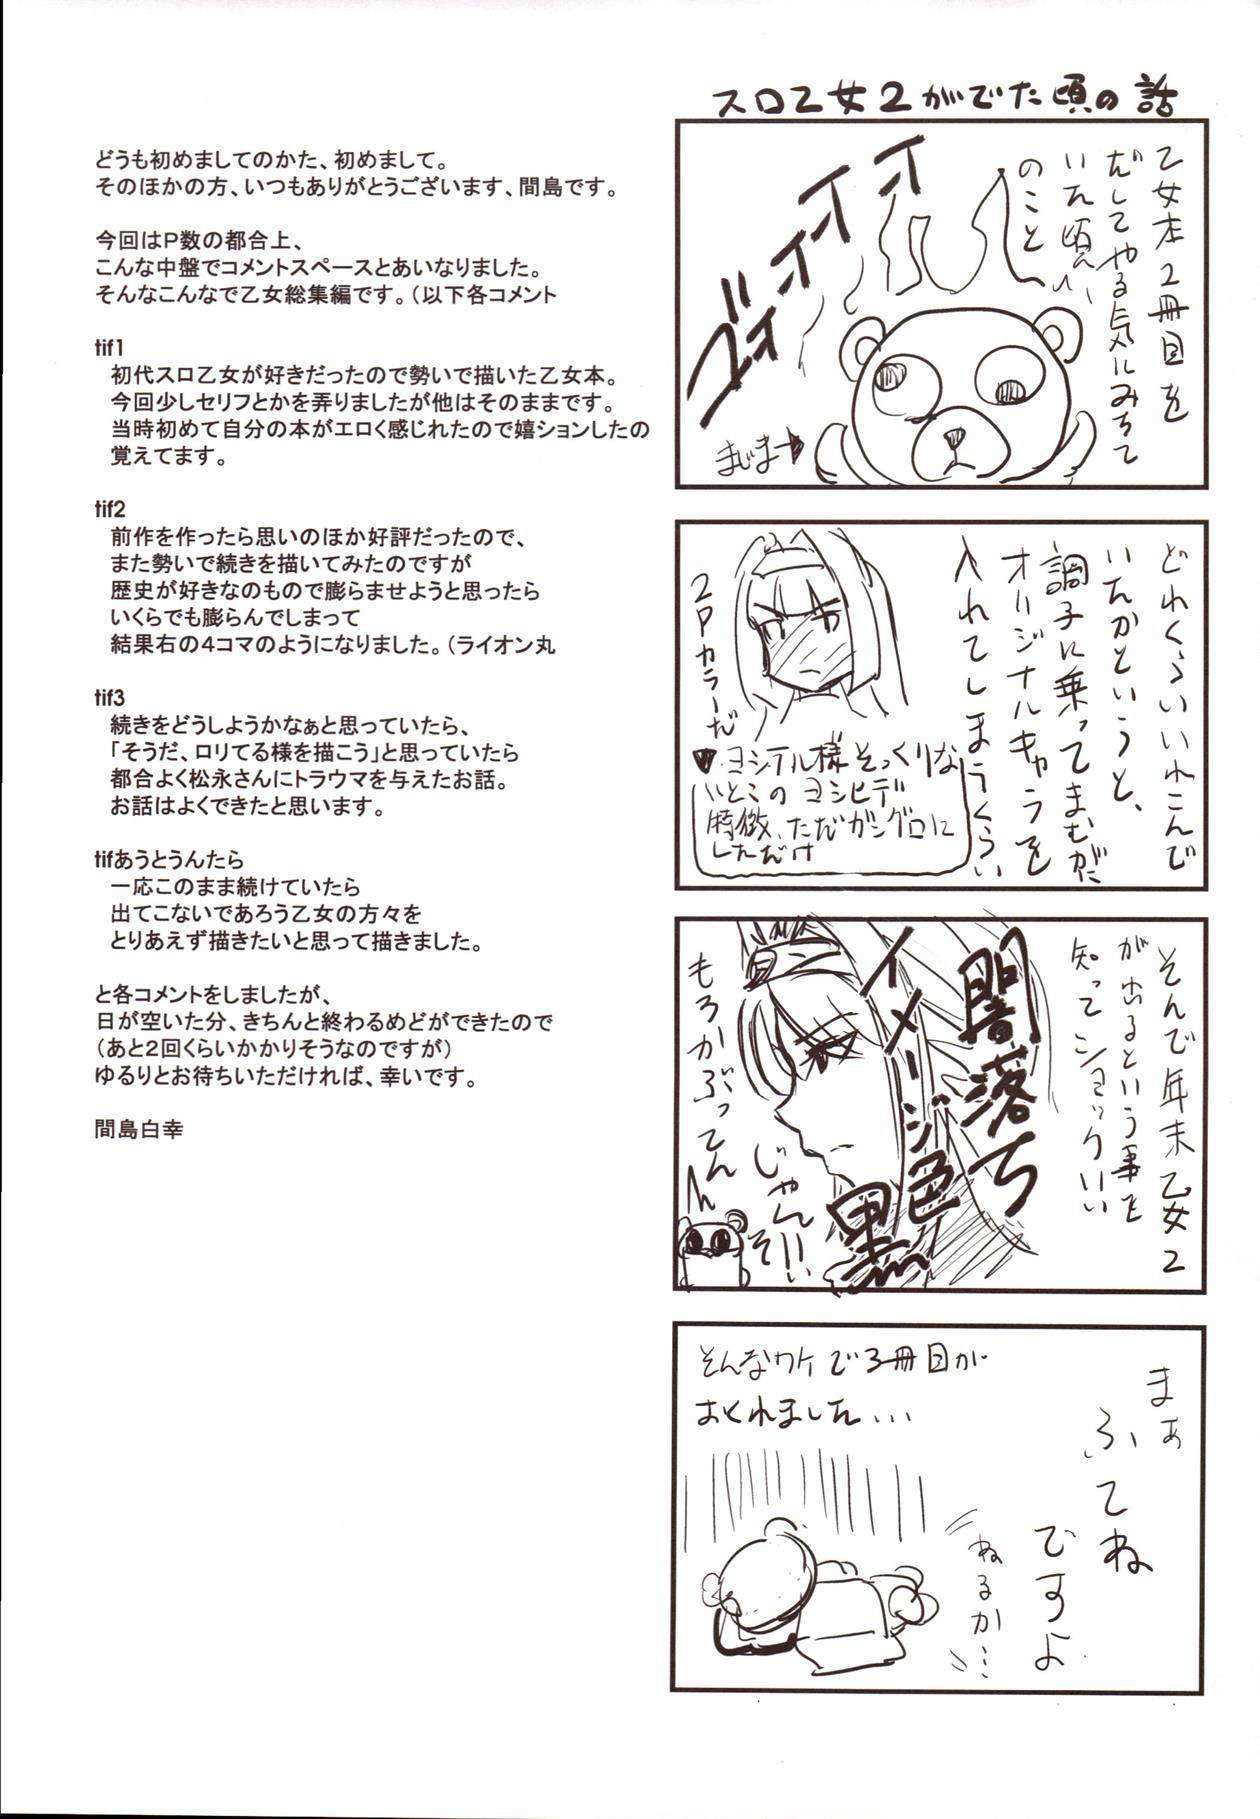 どうも初めましてのかた、初めまして。
そのほかの方、いつもありがとうございます、間島です。
今回はP数の都合上、
こんな中盤でコメントスペースとあいなりました。
そんなこんなで乙女総集編です。（以下各コメント
tif1
初代スロ乙女が好きだったので勢いで描いた乙女本。
今回少しセリフとかを弄りましたが他はそのままです。
当時初めて自分の本がエロく感じれたので嬉ションしたの
覚えてます。
tif2
前作を作ったら思いのほか好評だったので、
また勢いで続きを描いてみたのですが
歴史が好きなのもので膨らませようと思ったら
いくらでも膨らんでしまって
結果右の4コマのようになりました。（ライオン丸
tif3
続きをどうしようかなぁと思っていたら、
「そうだ、ロリてる様を描こう」と思っていたら
都合よく松永さんにトラウマを与えたお話。
お話はよくできたと思います。
tifあうとうんたら
一応このまま続けていたら
出てこないであろう乙女の方々を
とりあえず描きたいと思って描きました。
と各コメントをしましたが、
日が空いた分、きちんと終わるめどができたので
（あと2回くらいかかりそうなのですが）
ゆるりとお待ちいただければ、幸いです。
間島白幸
スロ乙女2がでた頃の話
乙女本2冊目を
だしてやる気にみちて
いた頃
のこと
ゴォォォイイオォ
まじま→
どれくらいいれこんで
いたかというと、
調子に乗ってまむがだ
オリジナルキャラを
入れてしまうくらい
2Pカラーだ
♥ヨシテル様そっくりな
いとこのヨシヒデ
特徴、ただガングロに
しただけ
そんで年末乙女2
が出るという事を
知ってショックいい
闇落ち
イメージ色
黒
もろかぶってんん
じゃん!!
まぁ
ふてね
ですよ
ねるか…
そんなワケで3冊目が
おくれました...